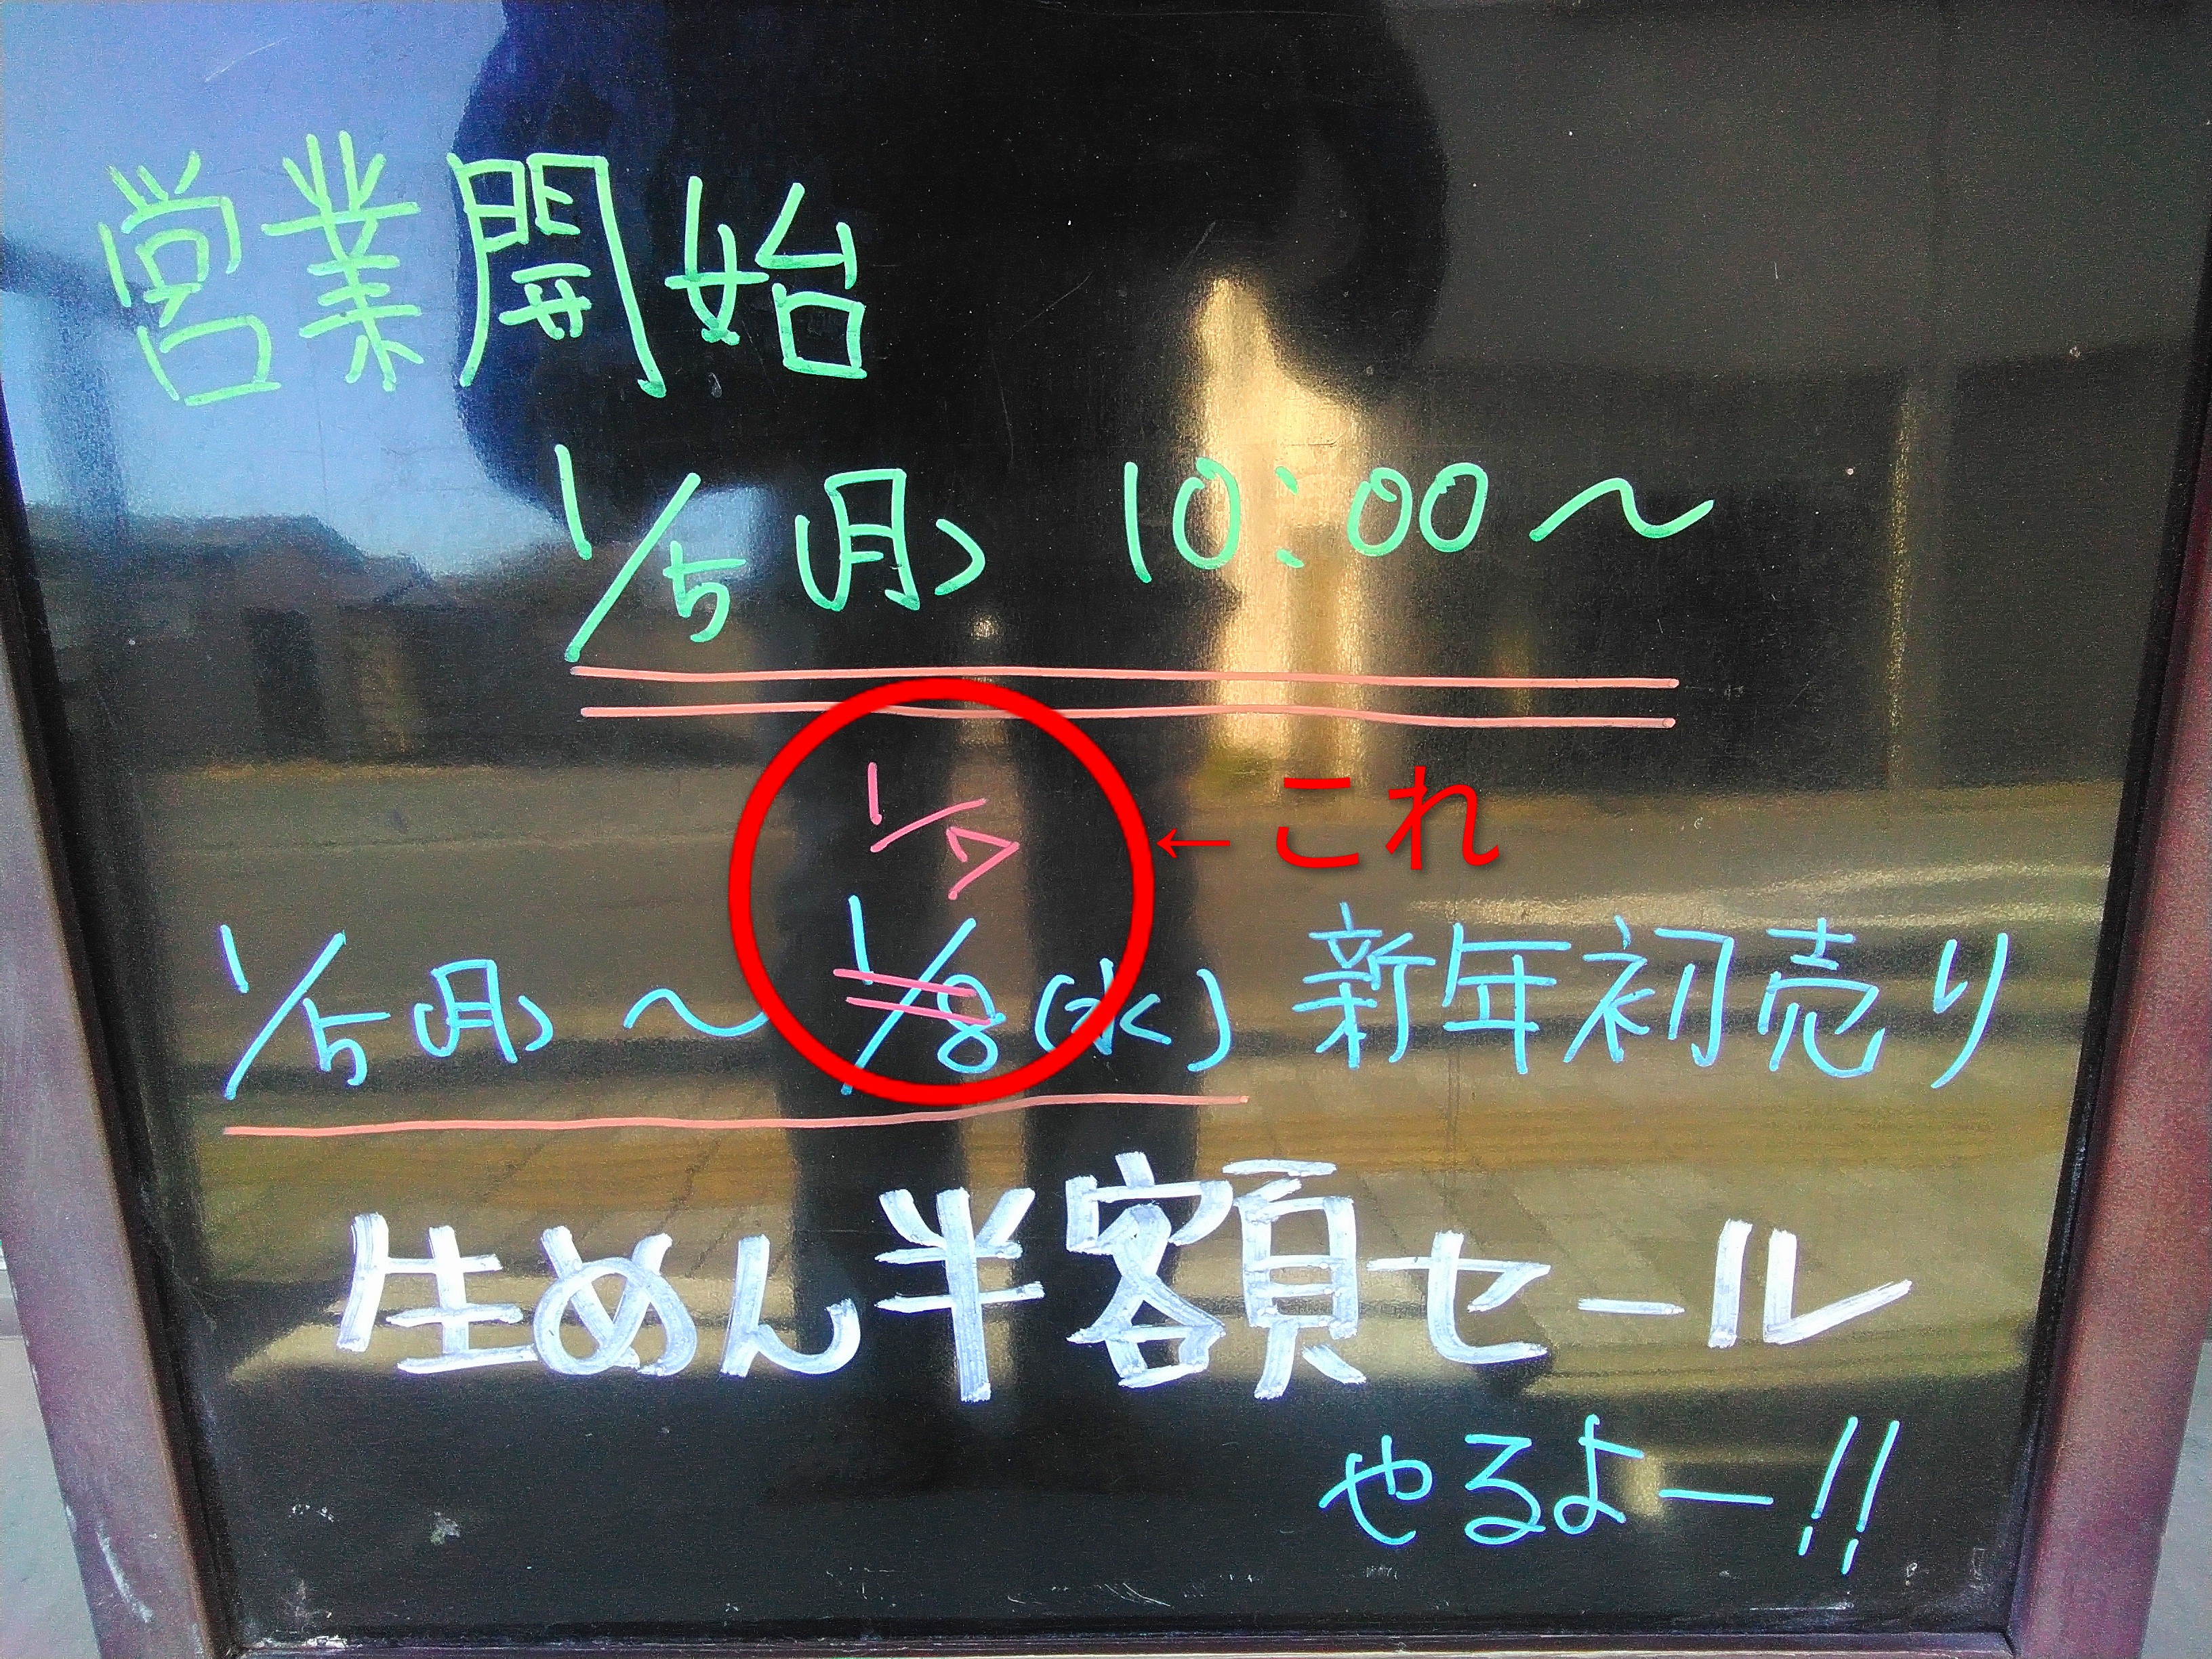 営業開始
1/5(月) 10:00〜
1/7
←これ
1/5(月)〜1/8(水)新年初売り
生めん半額セール
やるよー!!